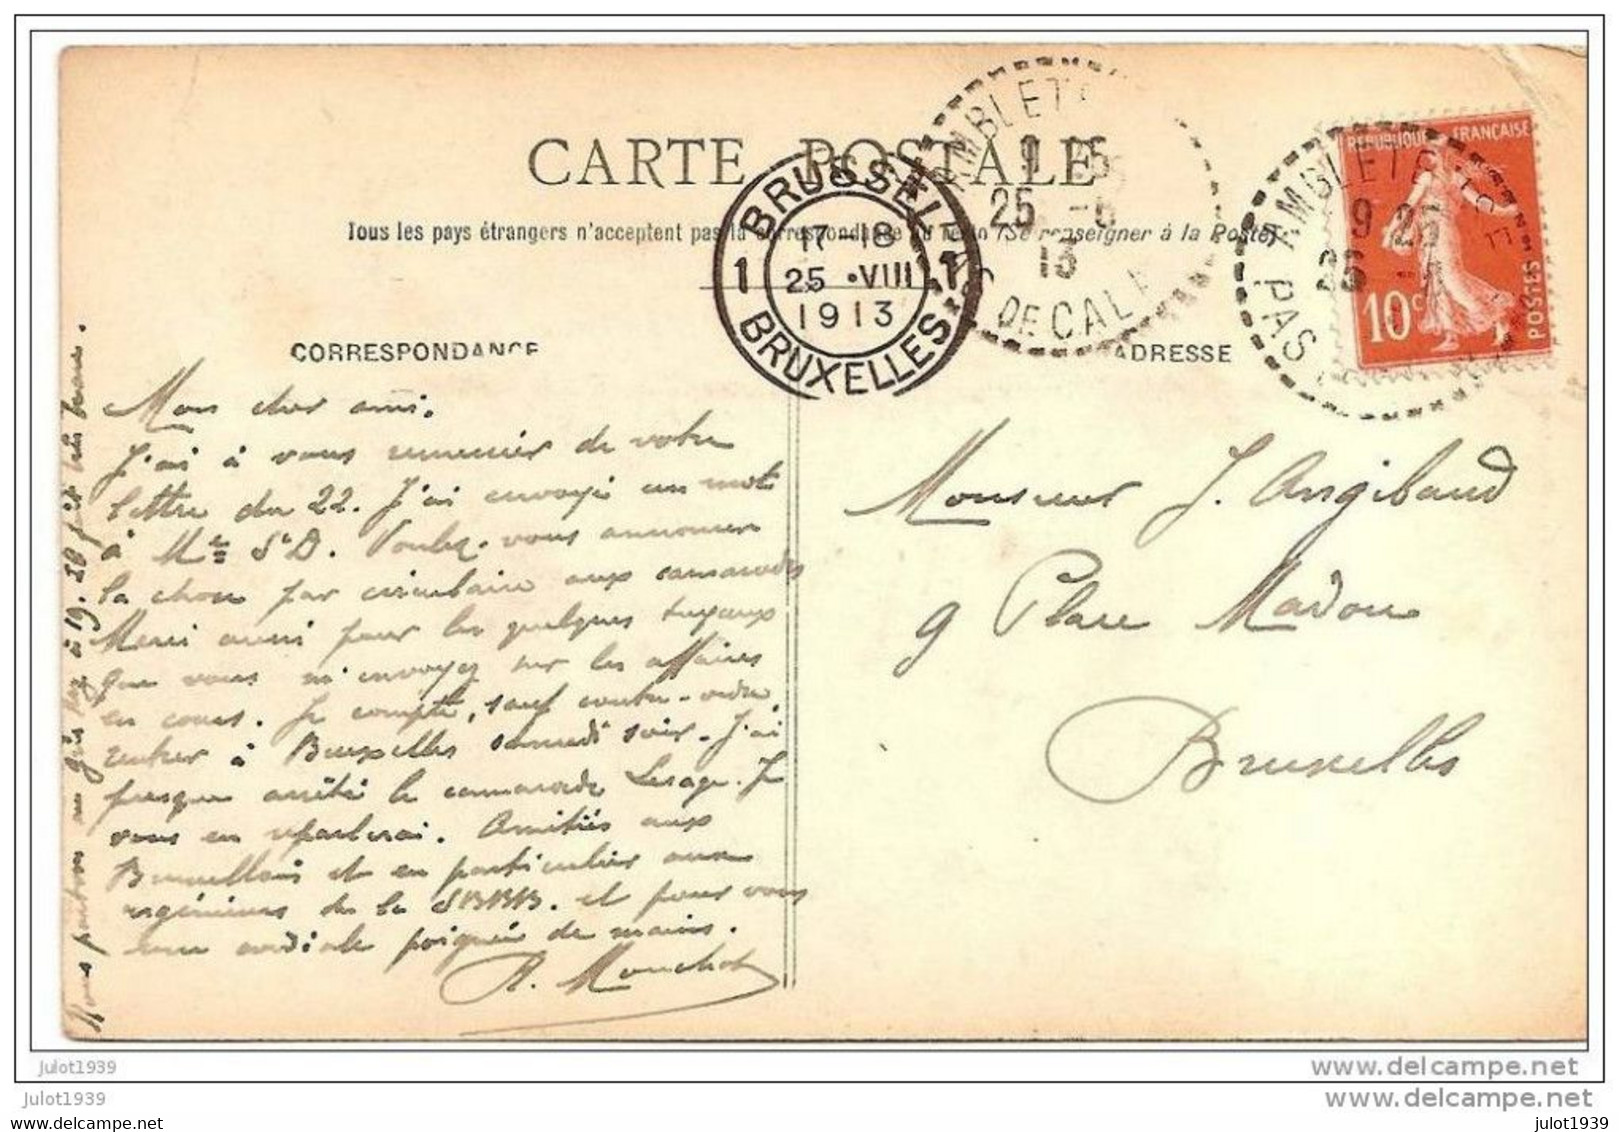 CARTE POSTALE
Tous les pays étrangers n'acceptent pas la correspondance au recto (Se renseigner à la Poste)
BRUSSEL
1 17-18 1
25 •VIII
1913
BRUXELLES
AMBLETE
9 25
25 -8
13
PAS DE CALA
AMBLETE
9 25
25
PAS
REPUBLIQUE FRANÇAISE
10c
POSTES
CORRESPONDANCE
ADRESSE
Mon cher ami.
J'ai à vous remercier de votre
lettre du 22. J'ai envoyé un mot
à Me St D. Voulez-vous annoncer
la chose par circulaire aux camarades
Merci aussi pour les quelques tuyaux
que vous m'envoyez sur les affaires
en cours. Je compte, sauf contre-ordre
rentrer à Bruxelles samedi soir. J'ai
presque arrêté le camarade Lesage. Je
vous en reparlerai. Amitiés aux
Bruxellois et en particulier aux
ingénieurs de la et pour vous
une cordiale poignée de mains.
A. Mouchot
Nous partons au à 19. 20 fait très beau.
Monsieur J. Angibaud
9 Place Madou
Bruxelles
julot1939
julot1939
www.delcampe.net
www.delcampe.net
julot1939
julot1939